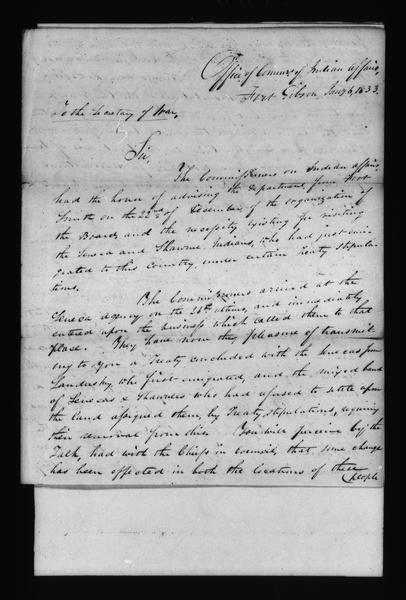 Office of Commrs of Indian Affairs,
Fort Gibson, Jany 6, 1833.
To the Secretary of War,
Sir,
The Commissioners on Indian affairs
had the honor of advising the department, from Fort
Smith on the 22nd of December, of the organization of
the Board, and the necessity existing for visiting
the Seneca and Shawnee Indians, who had just emi-
grated to this Country, under certain Treaty stipula-
tions.
The Commissioners arrived at the
Seneca agency on the 26th ultimo, and immediately
entered upon the business which called them to that
place. They have now the pleasure of transmit-
ing to You a Treaty concluded with the Senecas from
Sandusky, who first emigrated, and the mixed band
of Senecas & Shawnees who had refused to settle upon
the land assigned them, by Treaty stipulations, requiring
their removal from Ohio. You will perceive by the
Talk, had with the Chiefs in council, that some change
has been effected in both the locations of these
people